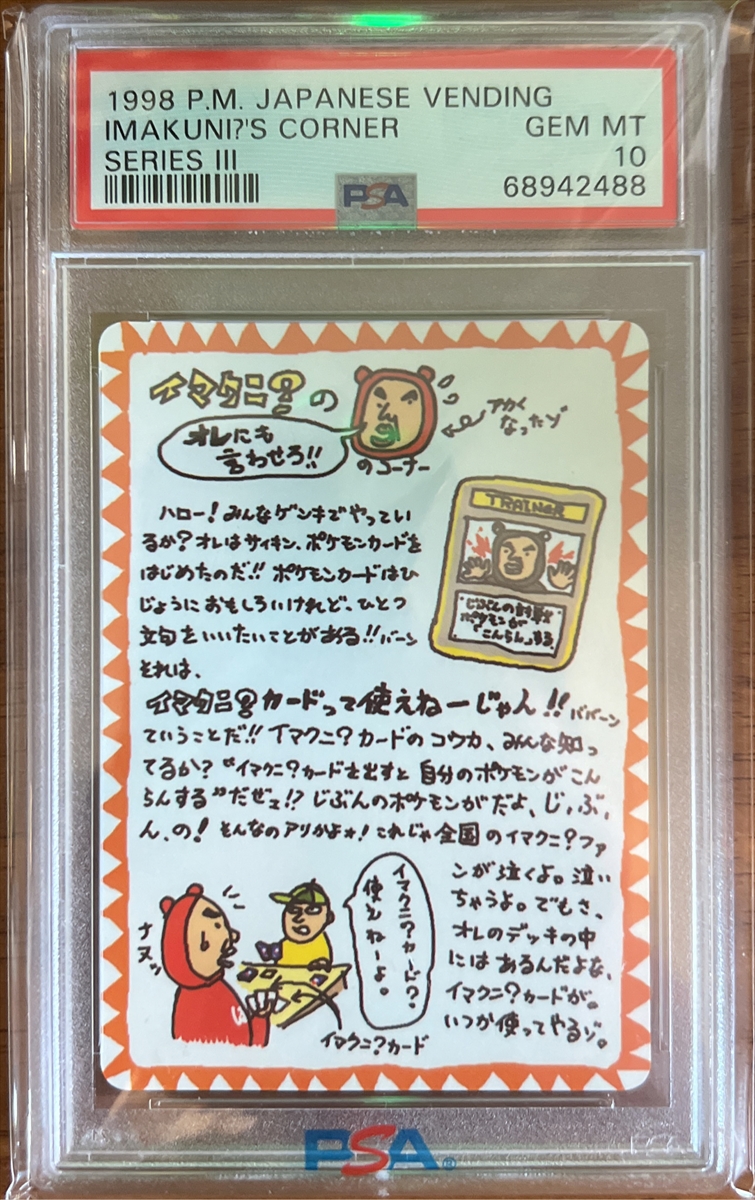 1998 P.M. JAPANESE VENDING
IMAKUNI?'S CORNER GEM MT
SERIES III 10
68942488
PSA
イマクニ?の
オレにも
言わせろ!!
のコーナー
アカく
なったゾ
ハロー!みんなゲンキでやってい
るか?オレはサイキン、ポケモンカードを
はじめたのだ!!ポケモンカードはひ
じょうにおもしろいけれど、ひとつ
文句をいいたいことがある!!バーン
それは、
TRAINER
じぶんの対戦
ポケモンが
「こんらん」する
イマクニ?カードって使えねーじゃん!!ババーン
ていうことだ!!イマクニ?カードのコウカ、みんな知っ
てるか?“イマクニ?カードを出すと自分のポケモンがこん
らんする”だぜェ!?じぶんのポケモンがだよ、じ,ぶ,
ん、の!そんなのアリかよォ!これじゃ全国のイマクニ?ファ
ンが泣くよ。泣い
ちゃうよ。でもさ、
オレのデッキの中
にはあるんだよな、
イマクニ?カードが。
いつか使ってやるゾ。
ナヌッ
イマクニ?カード?
使えねーよ。
イマクニ?カード
PSA